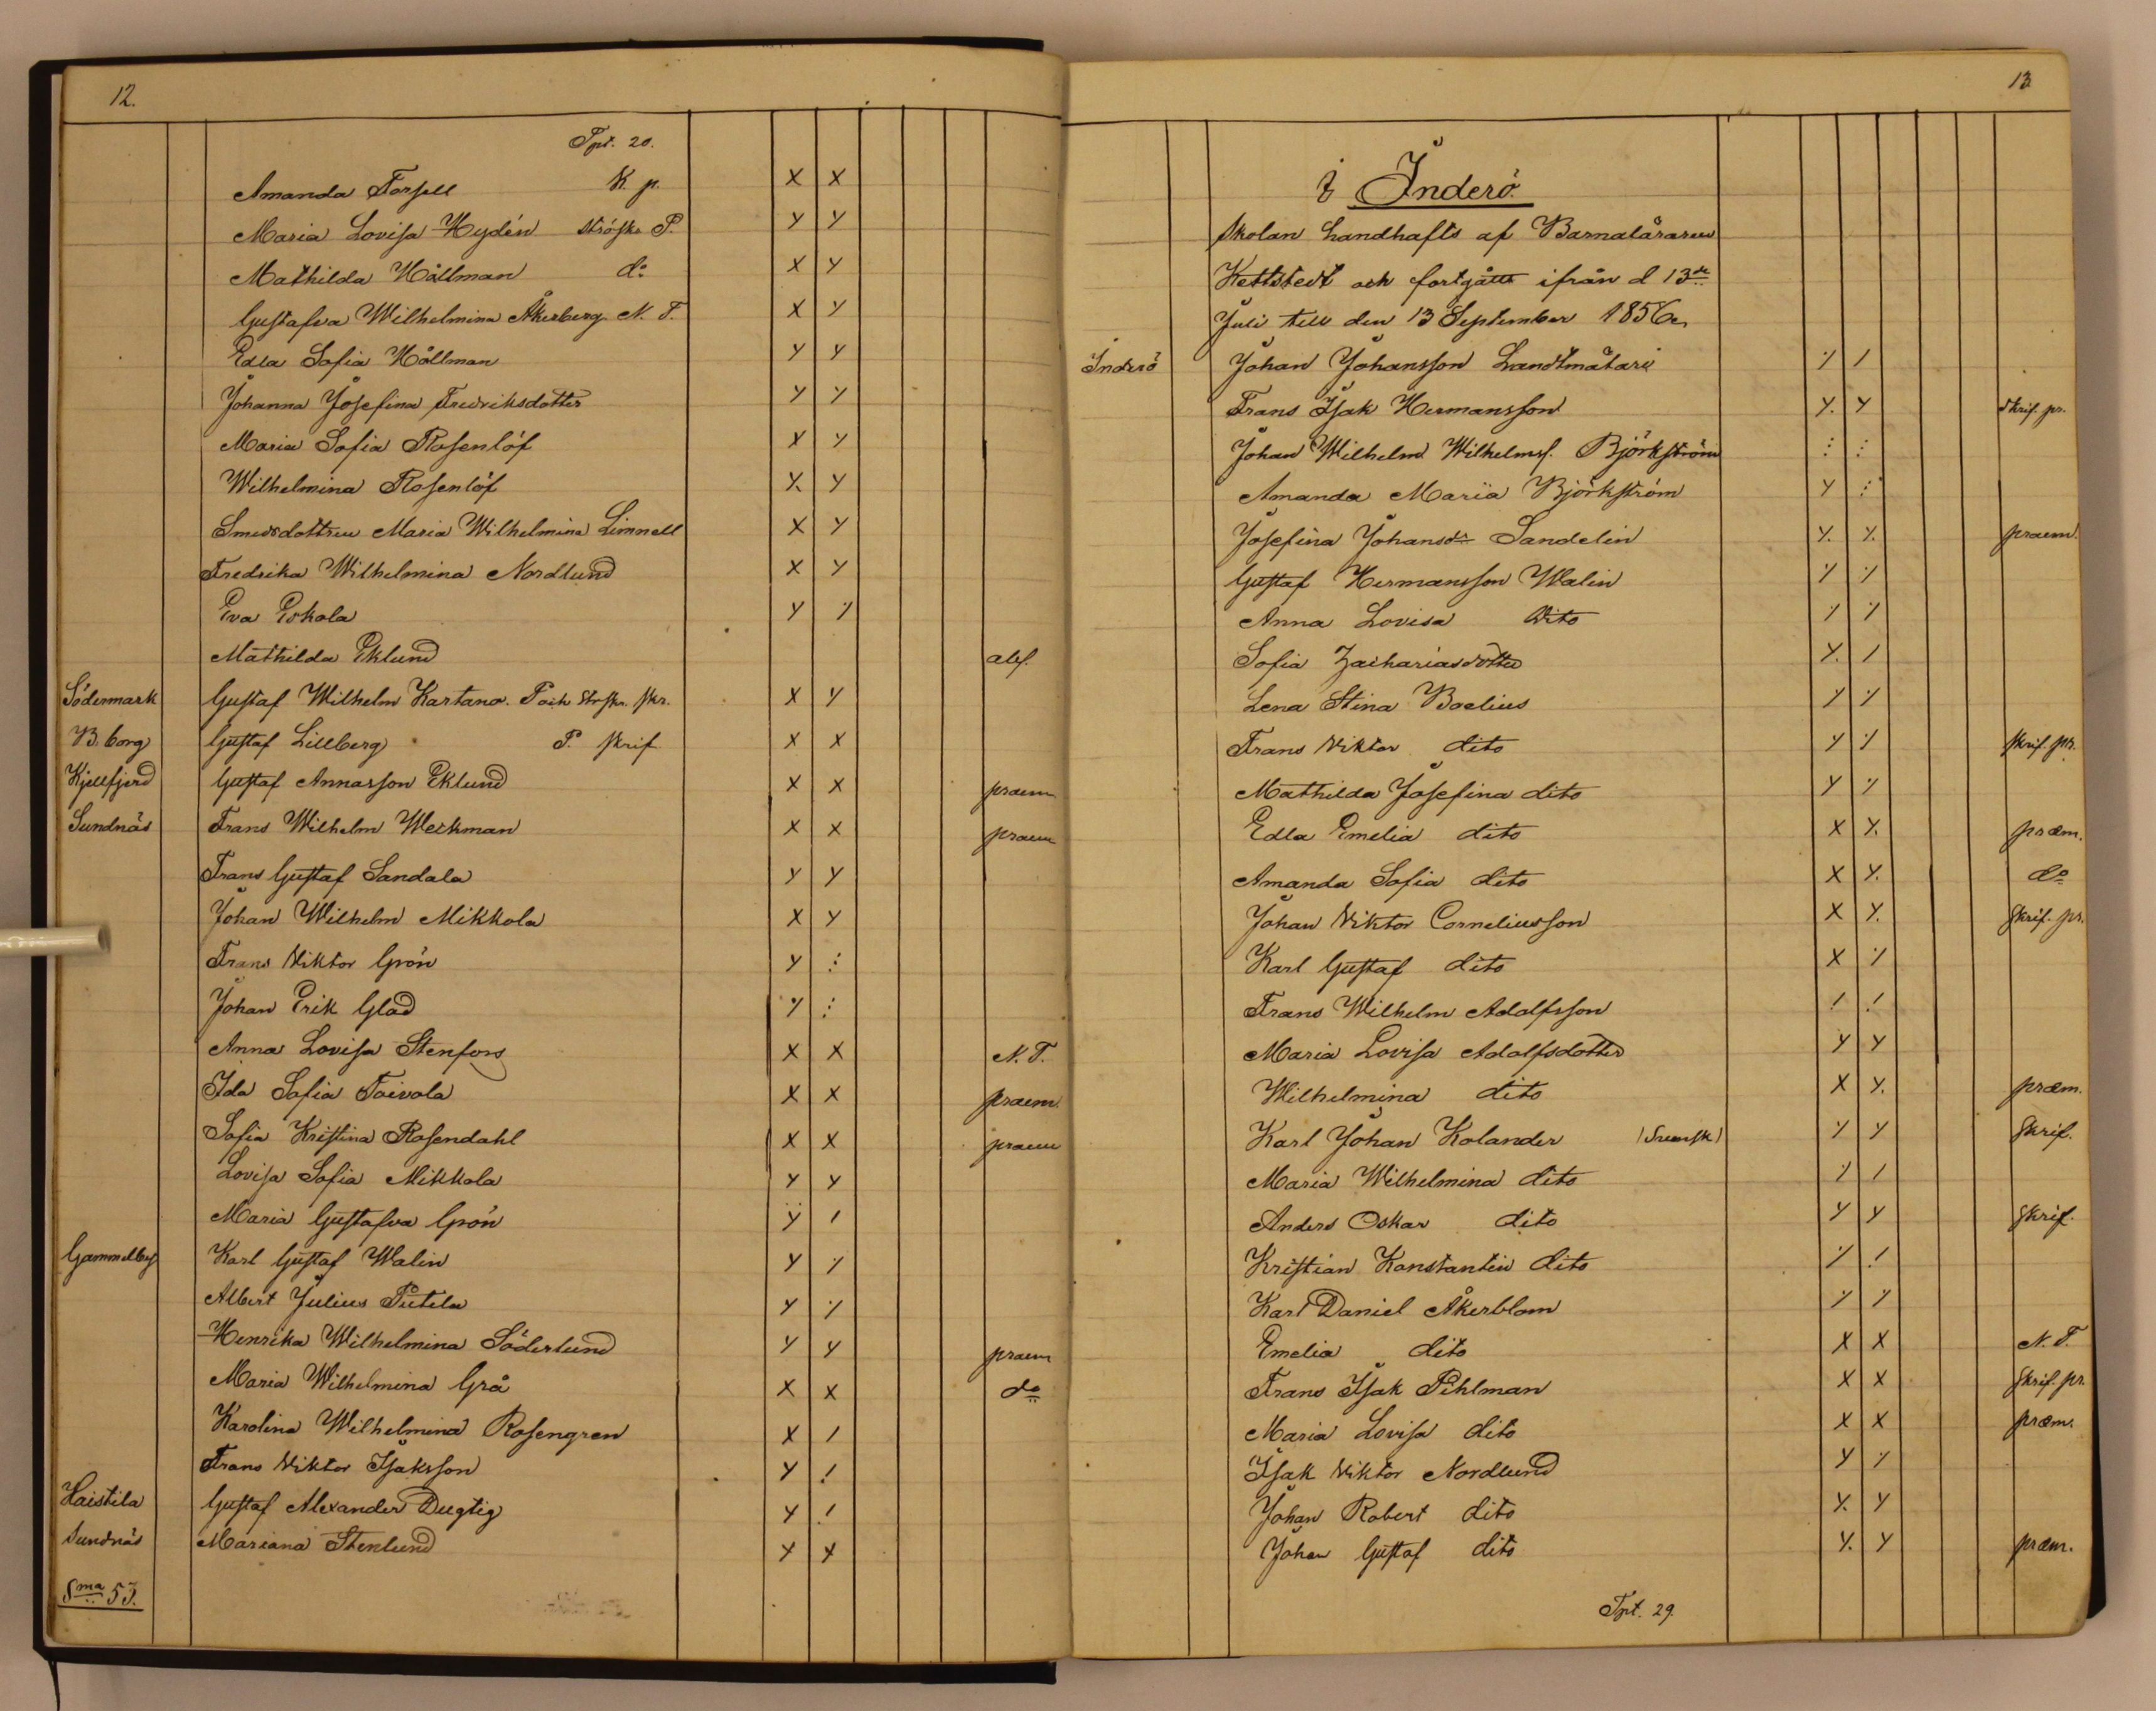 12.
Tpt. 20.
Amanda Forsell K. p. X X
Maria Lovisa Hydén ströskr. P. Y Y
Mathilda Hällman do X Y
Gustafva Wilhelmina Åkerberg N. T. X Y
Edla Sofia Hällman Y Y
Johanna Josefina Fredriksdotter Y Y
Maria Sofia Rosenlöf Y Y
Wilhelmina Rosenlöf Y. Y
Smedsdottren Maria Wilhelmina Limnell X Y
Fredrika Wilhelmina Nordlund X Y
Eva Eskola Y ٪
Mathilda Eklund abf.
Södermark Gustaf Wilhelm Kartano. P och Strskr. skr. X Y
B.borg Gustaf Lillberg P. skrif X X
Kjellfjerd Gustaf Annasson Eklund X X praem
Sundnäs Frans Wilhelm Weckman X X praem
Frans Gustaf Sandala Y Y
Johan Wilhelm Mikkola X Y
Frans Viktor Grön Y :
Johan Erik Glad ٪ :
Anna Lovisa Stenfors X X N. T.
Ida Sofia Toivola X X praem.
Sofia Kristina Rosendahl X X praem
Lovisa Sofia Mikkola Y Y
Maria Gustafva Grön Y /
Gammelby Karl Gustaf Walin Y ٪
Albert Julius Putila Y ٪
Henrika Wilhelmina Söderlund Y Y praem
Maria Wilhelmina Grå X X do
Karolina Wilhelmina Rosengren X /
Frans Viktor Isaksson Y !
Haistila Gustaf Alexander Dugtig Y !
Sundnäs Mariana Stenlund Y Y
Sma 53.
13
I Inderö.
Skolan handhafts af Barnaläraren
Kettstedt och fortgått ifrån d 13de
Juli till den 13 September 1856.
Inderö Johan Johansson Landtmätari ٪ /
Frans Isak Hermansson Y. Y skrif. pr.
Johan Wilhelm Wilhelmss. Björkström : :
Amanda Maria Björkström Y :
Josefina Johansdr Sandelin Y. Y. praem.
Gustaf Hermansson Walin ٪ ٪
Anna Lovisa dito ٪ ٪
Sofia Zachariasdotter Y. /
Lena Stina Boelius Y ٪
Frans Viktor dito Y ٪ skrif. pr.
Mathilda Josefina dito Y ٪
Edla Emelia dito X Y. præm.
Amanda Sofia dito X Y. do
Johan Viktor Corneliusson X Y. skrif. pr.
Karl Gustaf dito X ٪
Frans Wilhelm Adolfsson ! !
Maria Lovisa Adolfsdotter Y Y
Wilhelmina dito X Y. præm.
Karl Johan Kolander (Svensk) Y Y skrif.
Maria Wilhelmina dito ٪ /
Anders Oskar dito Y Y skrif.
Kristian Konstantin dito ٪ !
Karl Daniel Åkerblom ٪ ٪
Emelia dito X X N. T.
Frans Isak Pihlman X X skrif. pr.
Maria Lovisa dito X X præm.
Isak Viktor Nordlund Y ٪
Johan Robert dito Y. Y
Johan Gustaf dito Y. Y præm.
Tpt. 29.